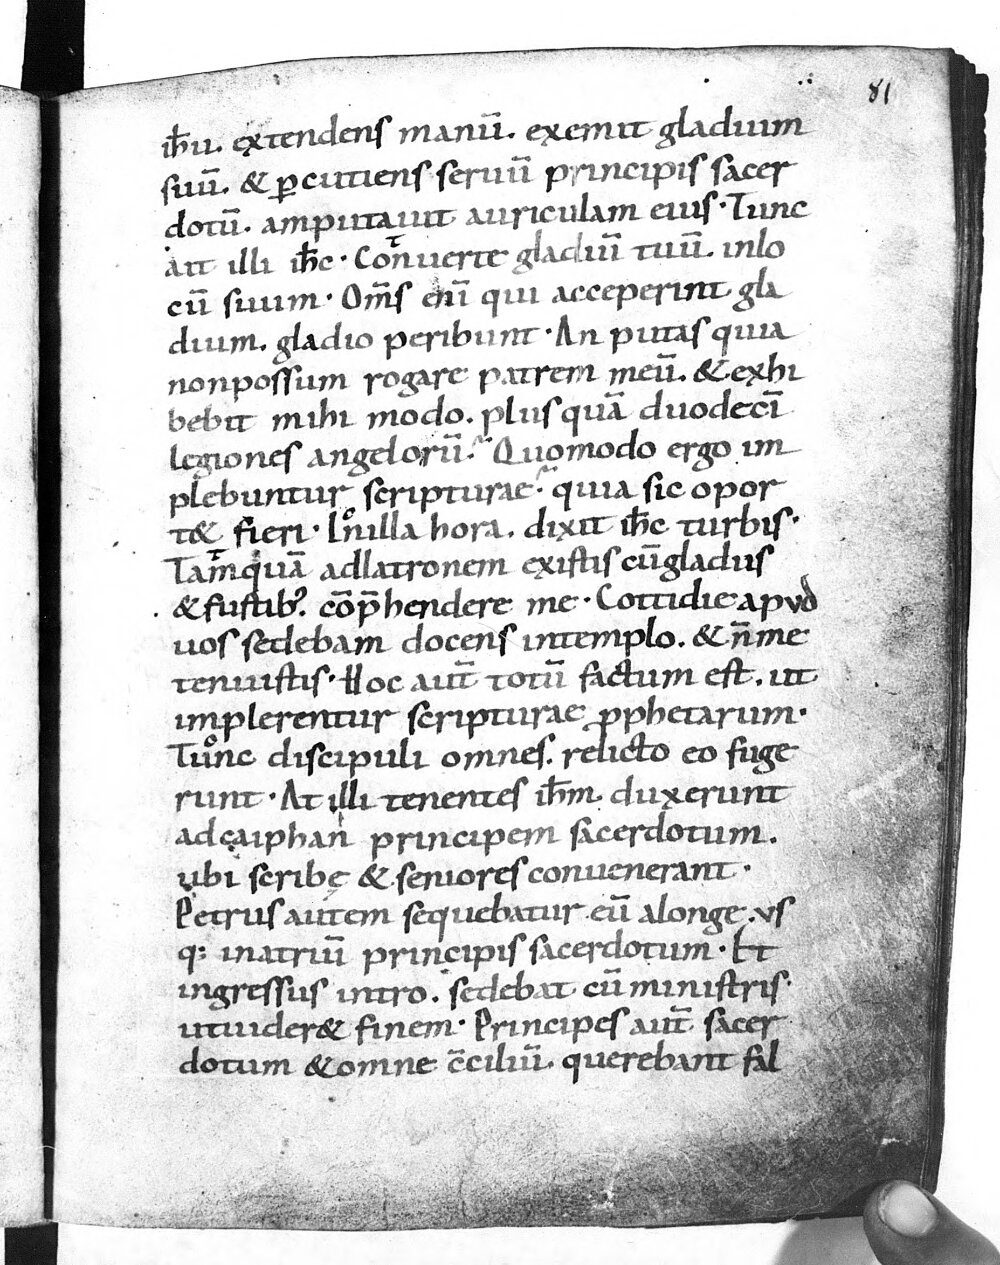 81
ih̄u. extendens manū. exemit gladium
suū. & ꝑcutiens seruū principis sacer
dotū. amputauit auriculam eius · Tunc
ait illi ih̄c · Conuerte gladiū tuū. inlo
cū suum · Om̄s enī qui acceperint gla
dium. gladio peribunt · An putas quia
nonpossum rogare patrem meū. & exhi
bebit mihi modo. plus quā duodecī
legiones angelorū. Quomodo ergo im
plebuntur scripturae · quia sic opor
t& fieri · In illa hora. dixit ih̄c turbis ·
Tamquā adlatronem existis cūgladiis
& fustib; cōp̄hendere me · Cottidie apud
uos sedebam docens intemplo. & n̄ me
tenuistis · Hoc aūt totū factum est. ut
implerentur scripturae ꝓphetarum ·
Tunc discipuli omnes. relicto eo fuge
runt · At illi tenentes ih̄m. duxerunt
adcaiphan principem sacerdotum.
ubi scribę & seniores conuenerant ·
Petrus autem sequebatur eū alonge. us
q: inatriū principis sacerdotum · Et
ingressus intro. sedebat cū ministris ·
utuider& finem · Principes aūt sacer
dotum & omne c̄ciliū. querebant fal